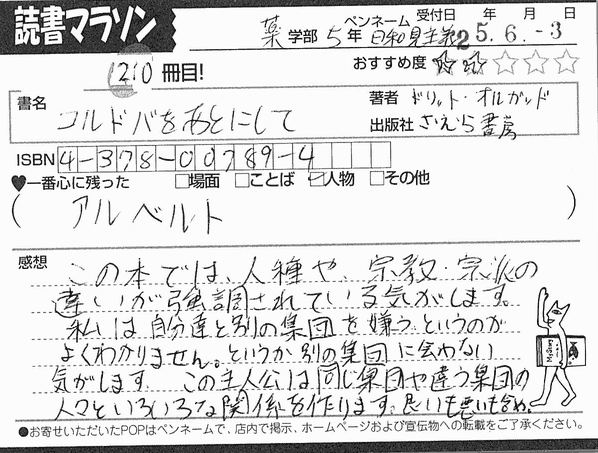 読書マラソン
薬学部 5年 ペンネーム 日和見主義 受付日 年 月 日
25.6.-3
1210冊目!
おすすめ度 ★★☆☆☆
書名 コルドバをあとにして
著者 ドリット・オルガッド
出版社 さえら書房
ISBN 4-378-00789-4
♥一番心に残った □場面 □ことば ☑人物 □その他
( アルベルト )
感想 この本では、人種や、宗教・宗派の
違いが強調されている気がします。
私は自分達と別の集団を嫌うというのが
よくわかりません。というか別の集団に会わない
気がします。 この主人公は同じ集団や違う集団の
人々といろいろな関係を作ります。良いも悪いも含め。
●お寄せいただいたPOPはペンネームで、店内で掲示、ホームページおよび宣伝物への転載をご了承ください。